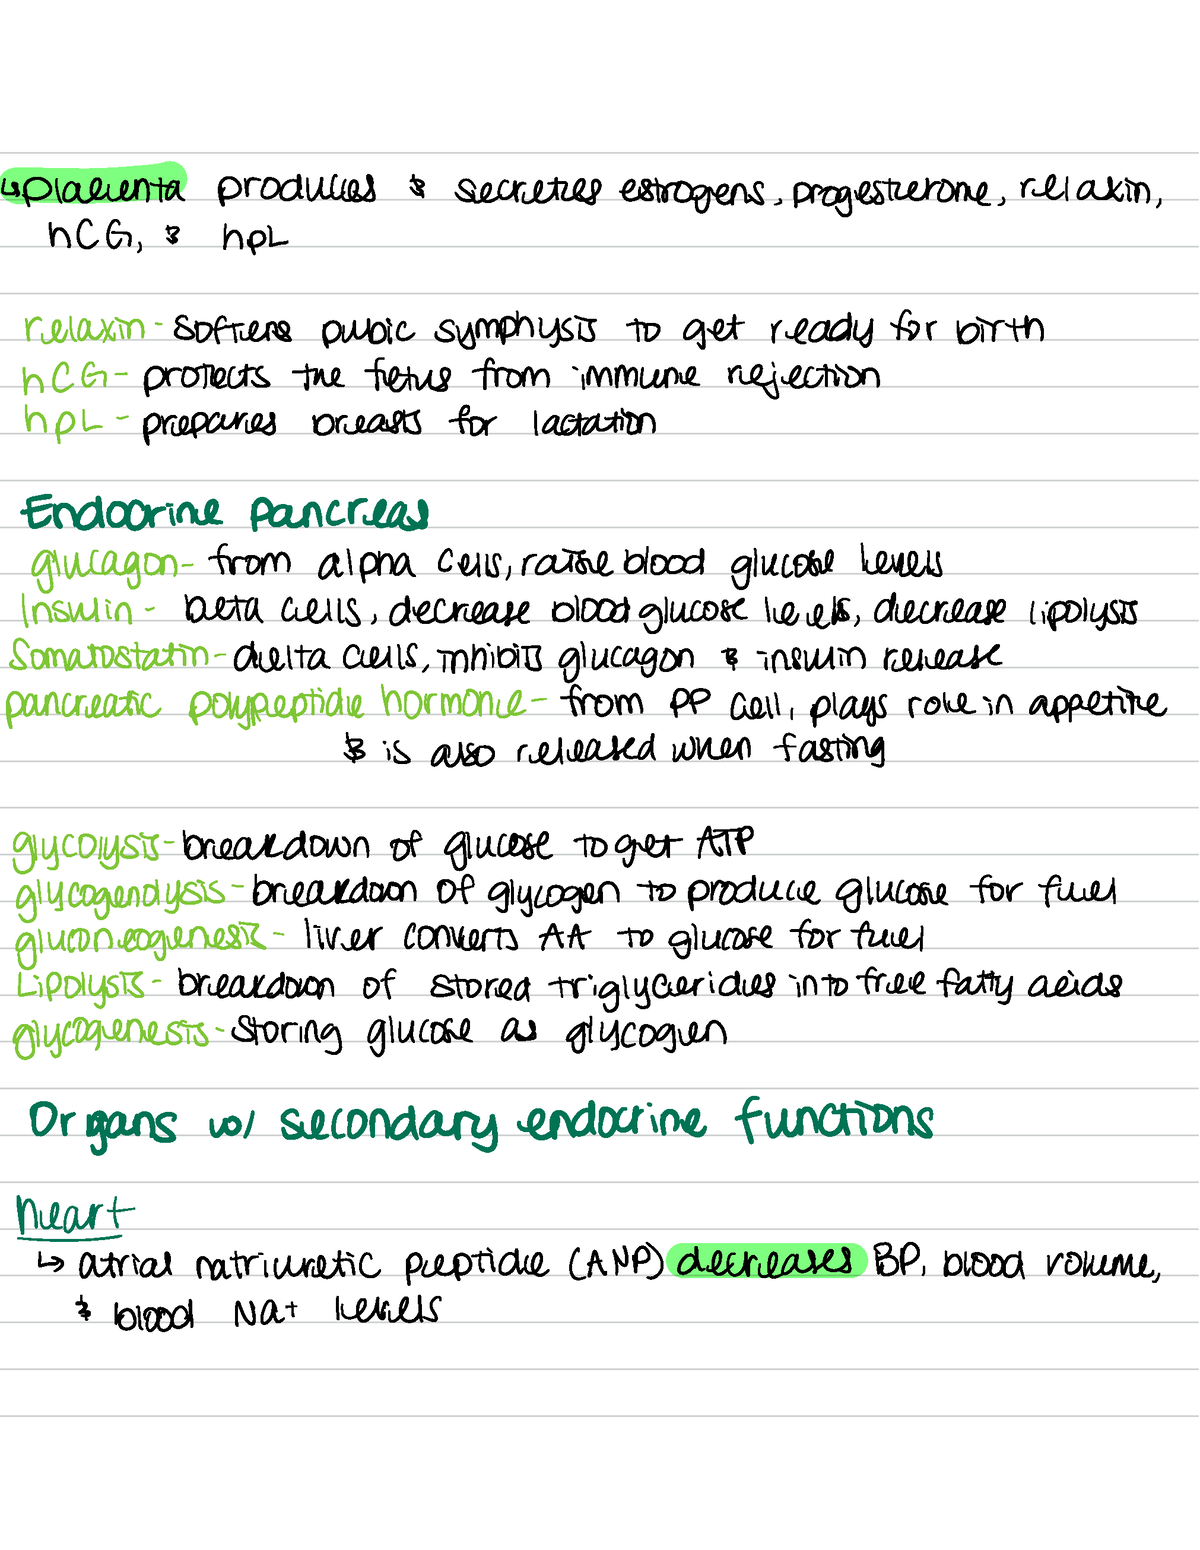 ↳placenta produces & secretes estrogens, progesterone, relaxin,
hCG, & hpL
relaxin - softens pubic symphysis to get ready for birth
hCG - protects the fetus from immune rejection
hpL - prepares breasts for lactation
Endocrine pancreas
glucagon - from alpha cells, raise blood glucose levels
Insulin - beta cells, decrease blood glucose levels, decrease lipolysis
Somatostatin - delta cells, inhibits glucagon & insulin release
pancreatic polypeptide hormone - from PP cell, plays role in appetite
& is also released when fasting
glycolysis - breakdown of glucose to get ATP
glycogenolysis - breakdown of glycogen to produce glucose for fuel
gluconeogenesis - liver converts AA to glucose for fuel
Lipolysis - breakdown of stored triglycerides into free fatty acids
glycogenesis - storing glucose as glycogen
Organs w/ secondary endocrine functions
heart
↳ atrial natriuretic peptide (ANP) decreases BP, blood volume,
& blood Na+ levels